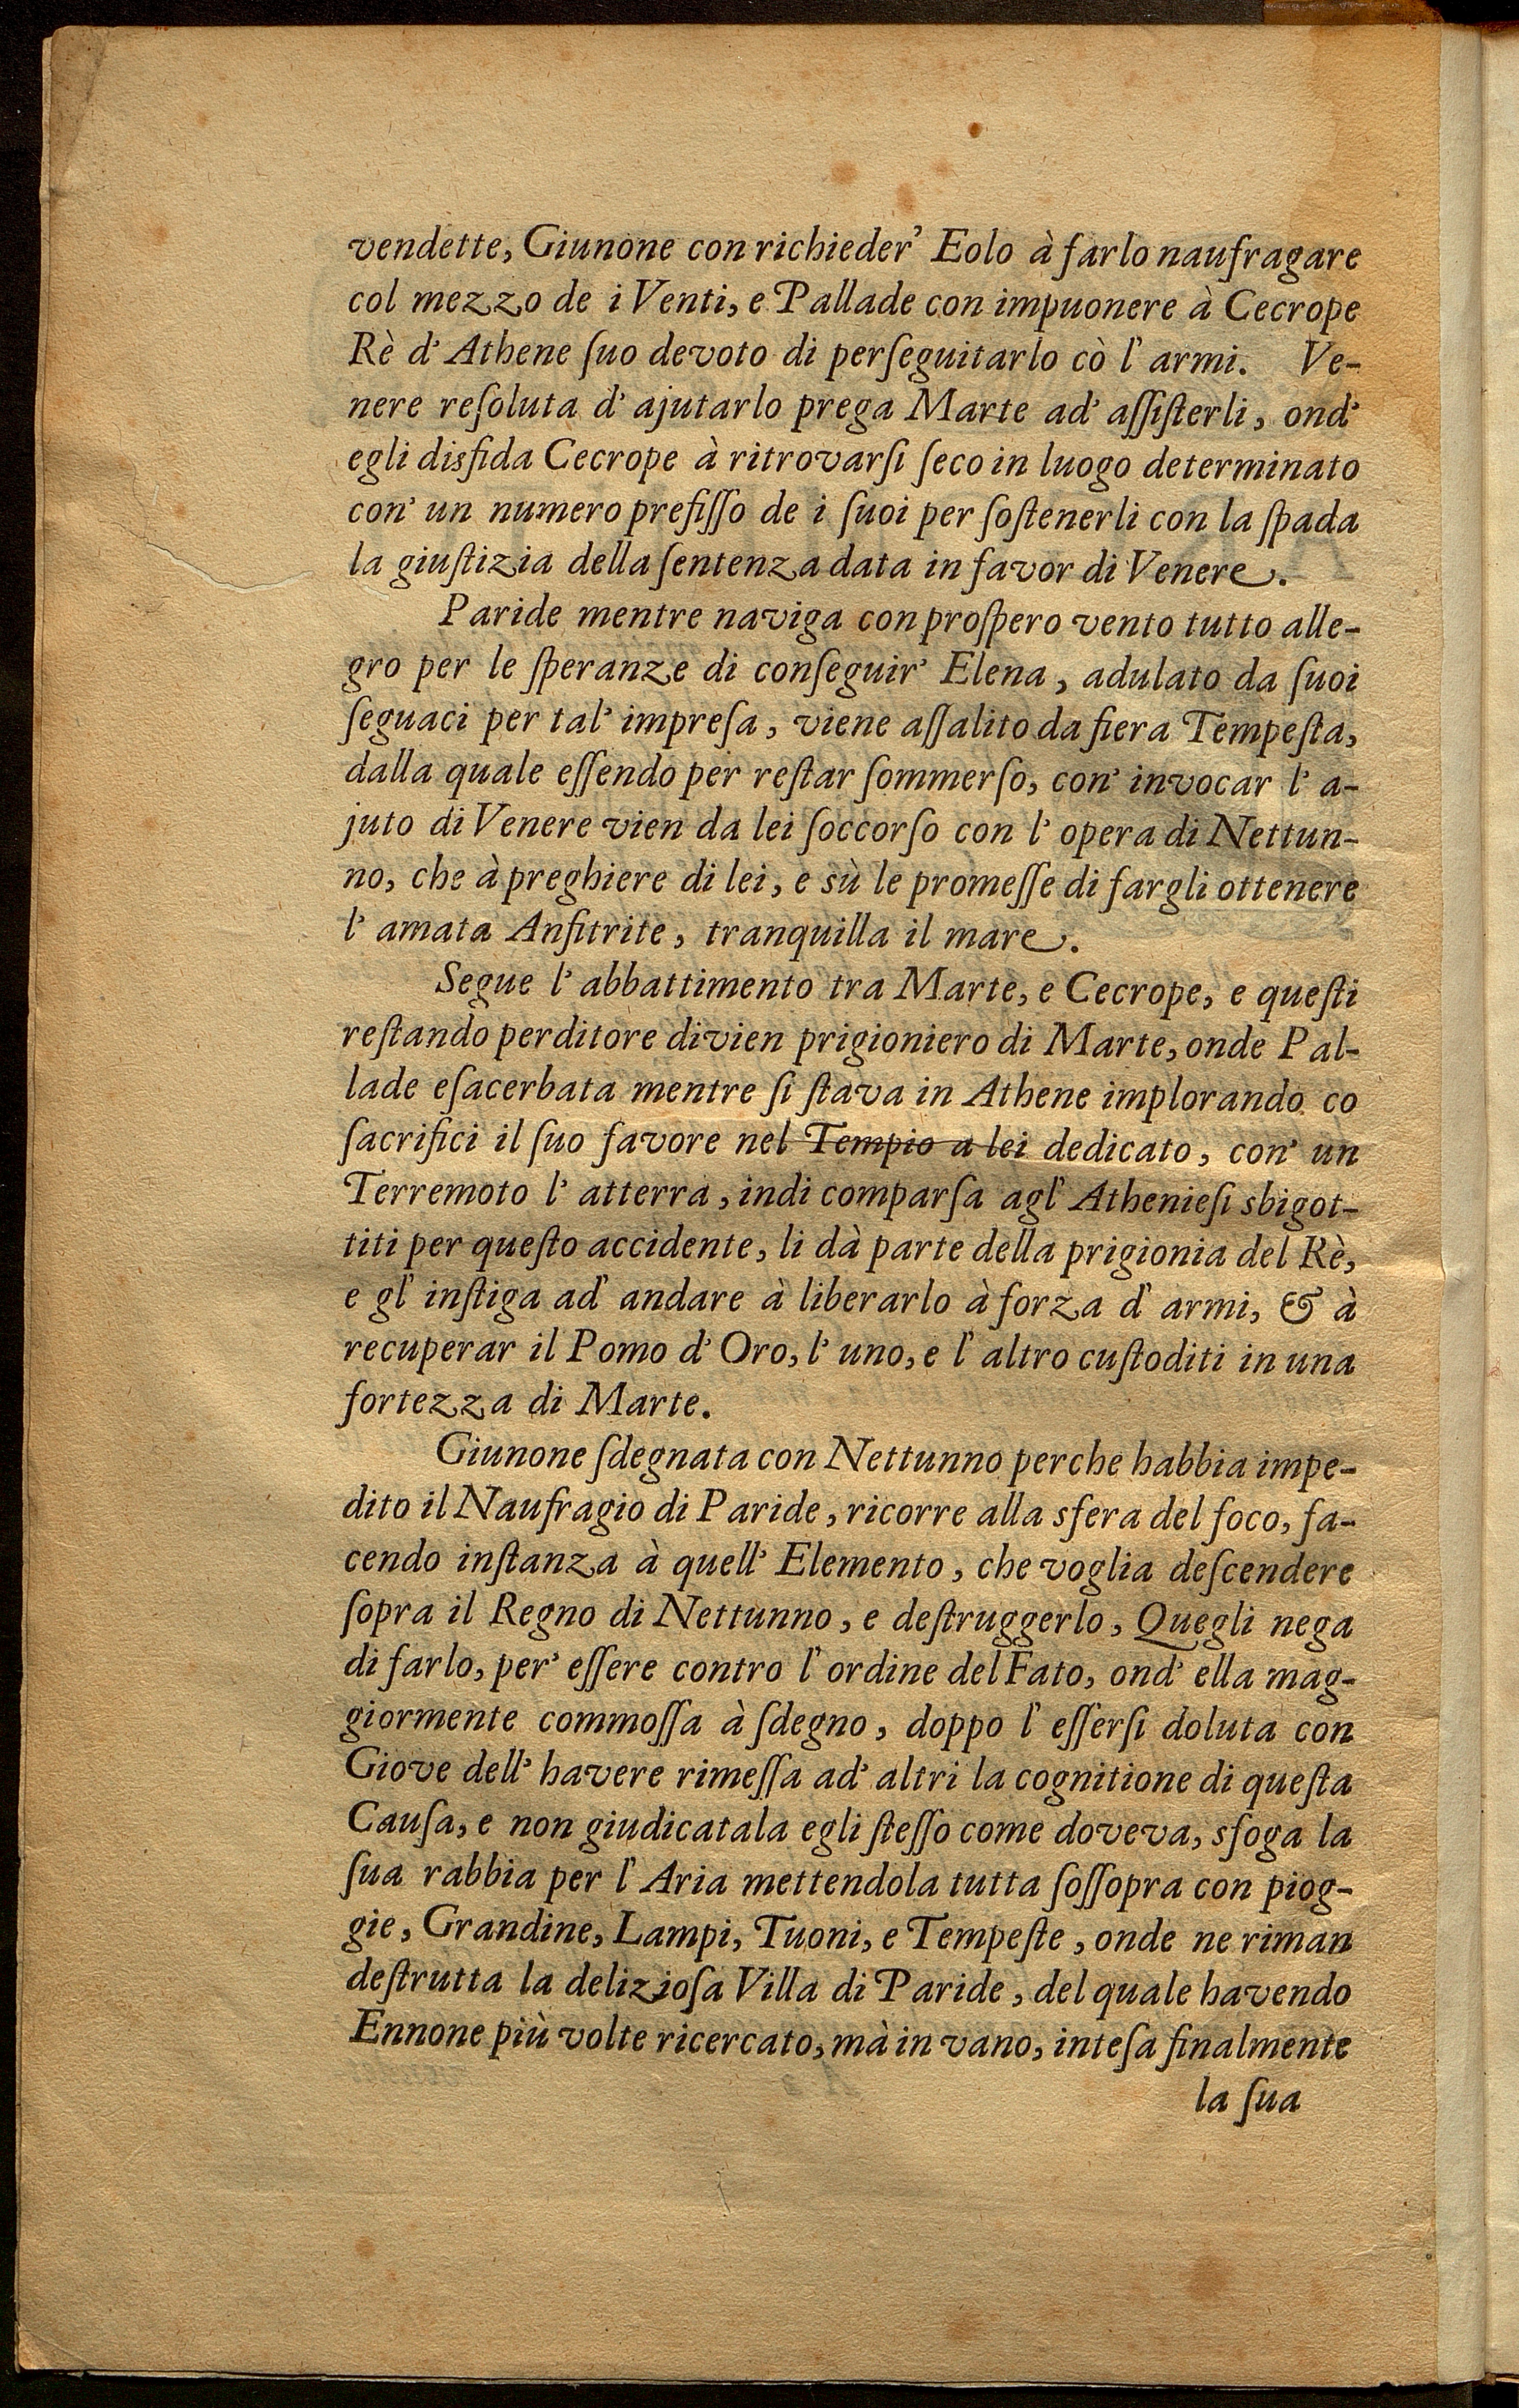 vendette, Giunone con richieder' Eolo à farlo naufragare
col mezzo de i Venti, e Pallade con impuonere à Cecrope
Rè d' Athene ſuo devoto di perſeguitarlo cò l' armi. Ve-
nere reſoluta d' ajutarlo prega Marte ad' aſſiſterli, ond'
egli disfida Cecrope à ritrovarſi ſeco in luogo determinato
con' un numero prefiſſo de i ſuoi per ſoſtenerli con la ſpada
la giuſtizia della ſentenza data in favor di Venere.
Paride mentre naviga con proſpero vento tutto alle-
gro per le ſperanze di conſeguir' Elena, adulato da ſuoi
ſeguaci per tal' impreſa, viene aſſalito da fiera Tempeſta,
dalla quale eſſendo per reſtar ſommerſo, con' invocar l' a-
juto di Venere vien da lei ſoccorſo con l' opera di Nettun-
no, che à preghiere di lei, e sù le promeſſe di fargli ottenere
l' amata Anfitrite, tranquilla il mare.
Segue l' abbattimento tra Marte, e Cecrope, e queſti
reſtando perditore divien prigioniero di Marte, onde Pal-
lade eſacerbata mentre ſi ſtava in Athene implorando co
ſacrifici il ſuo favore nel Tempio a lei dedicato, con' un
Terremoto l' atterra, indi comparſa agl' Athenieſi sbigot-
titi per queſto accidente, li dà parte della prigionia del Rè,
e gl' inſtiga ad' andare à liberarlo à forza d' armi, & à
recuperar il Pomo d' Oro, l' uno, e l' altro cuſtoditi in una
fortezza di Marte.
Giunone ſdegnata con Nettunno perche habbia impe-
dito il Naufragio di Paride, ricorre alla sfera del foco, fa-
cendo inſtanza à quell' Elemento, che voglia deſcendere
ſopra il Regno di Nettunno, e deſtruggerlo, Quegli nega
di farlo, per' eſſere contro l' ordine del Fato, ond' ella mag-
giormente commoſſa à ſdegno, doppo l' eſſerſi doluta con
Giove dell' havere rimeſſa ad' altri la cognitione di queſta
Cauſa, e non giudicatala egli ſteſſo come doveva, sfoga la
ſua rabbia per l' Aria mettendola tutta ſoſſopra con piog-
gie, Grandine, Lampi, Tuoni, e Tempeſte, onde ne riman
deſtrutta la delizioſa Villa di Paride, del quale havendo
Ennone più volte ricercato, mà in vano, inteſa finalmente
la ſua